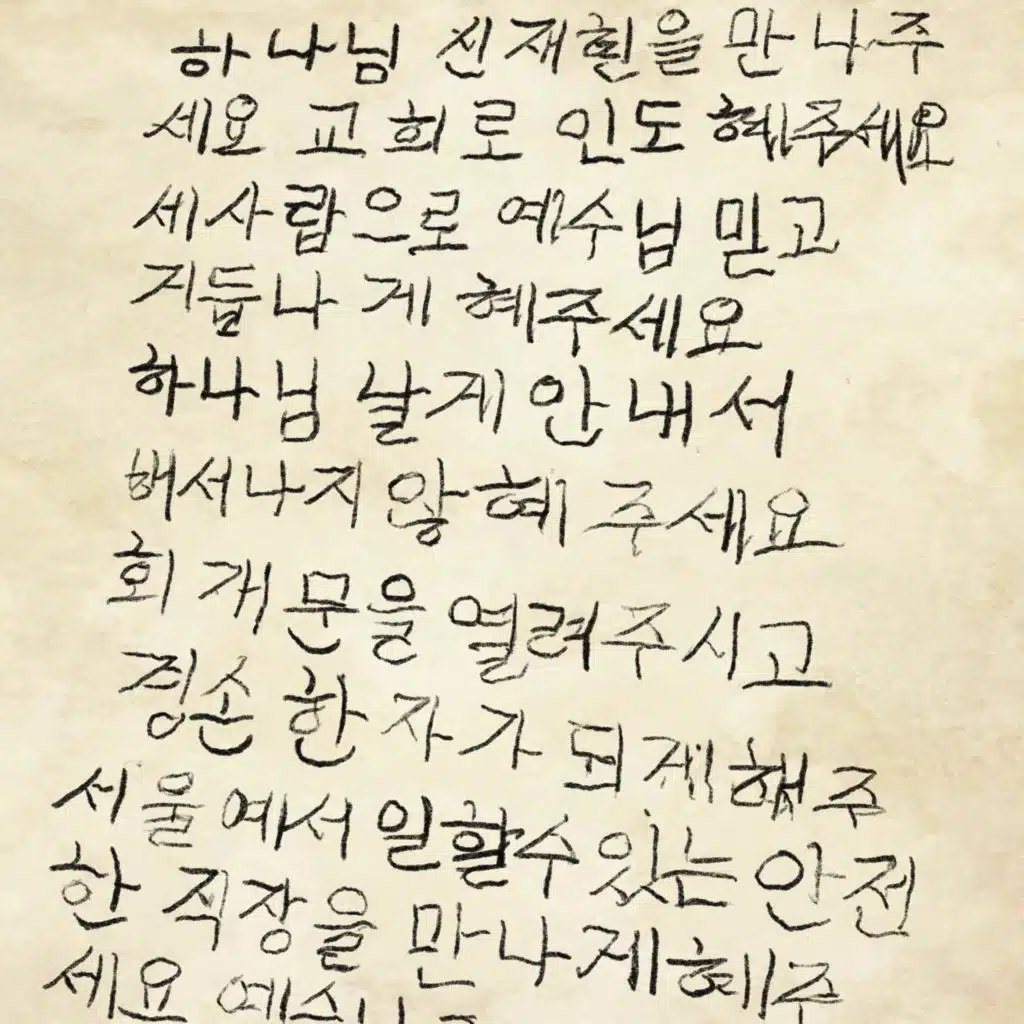 하나님 신재휜을 만나주
세요 교희로 인도 혜주세요
세사람으로 예수님 믿고
지듭나 게 혜주세요
하나님 날게안내서
해서나지 않혜 주세요
회개문을 열려주시고
겸손한자가 되게해주
서울예서 일할수있는 안전
한 직장을 만나게혜주
세요